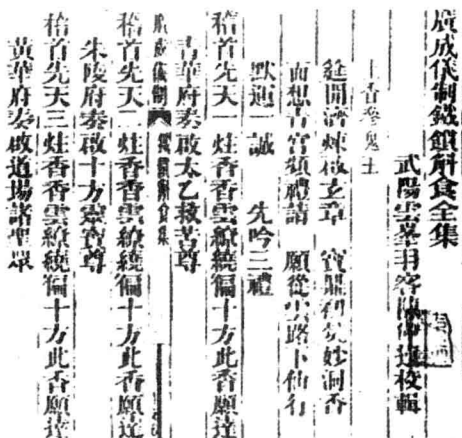 廣成儀制鐵鑵斛食全集
武陽雲峯羽客陳仲遠校輯
香參鬼
筵開濟煉啟玄章 寶鼎初焚妙洞香
面想青宮頻禮請 願從雲路下仙行
默運一誠 先吟三禮
稽首先天一炷香香雲繚繞徧十方此香願達
青華府奏啟太乙救苦尊
廣成儀制 鐵鑵斛食全集
稽首先天二炷香香雲繚繞徧十方此香願達
朱陵府奏啟十方靈寶尊
稽首先天三炷香香雲繚繞徧十方此香願達
黃華府奏啟道場諸聖眾